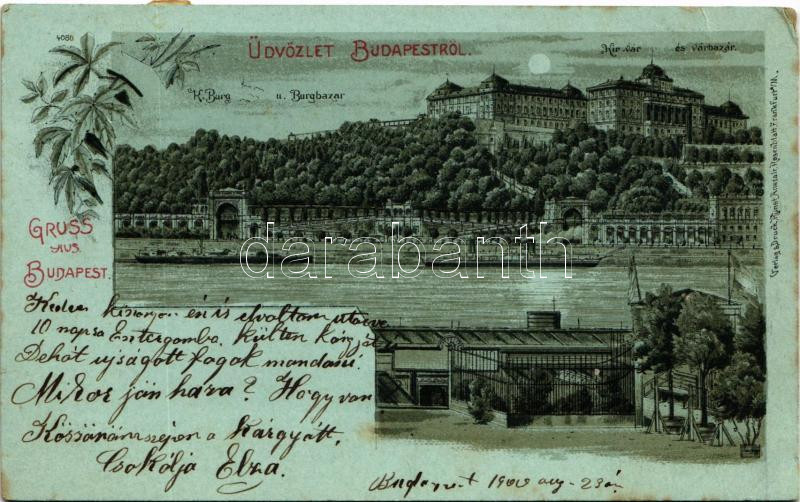 4086
ÜDVÖZLET BUDAPESTRŐL.
Kir. vár és várbazár.
K. Burg u. Burgbazar
GRUSS
AUS
BUDAPEST.
Verlag & Druck, Kunst Anstalt, Rosenblatt, Frankfurt a/M.
darabanth
Kedves én is elvoltam utazva
10 napra Esztergomba, küldtem
Dehát ujságott fogok mondani
Mikor jön haza? Hogy van
Köszönöm szépen a kárgyátt.
Csokolja Elza.
Budapest 1900 aug. 23án